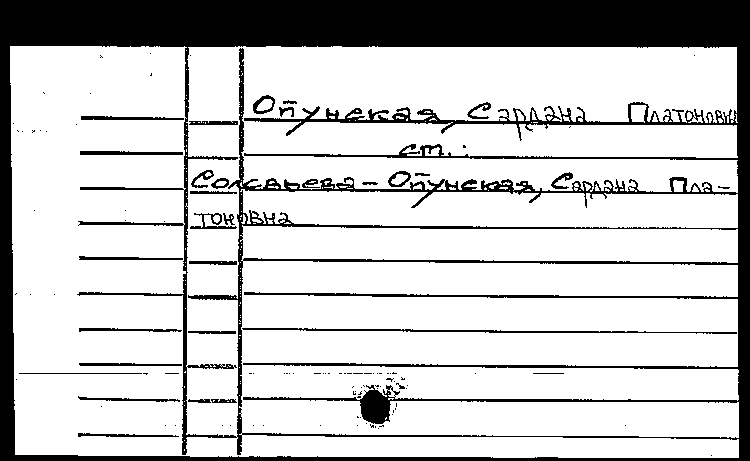 Ойунская, Сардана Платоновна
ст.:
Соловьева-Ойунская, Сардана Пла-
тоновна